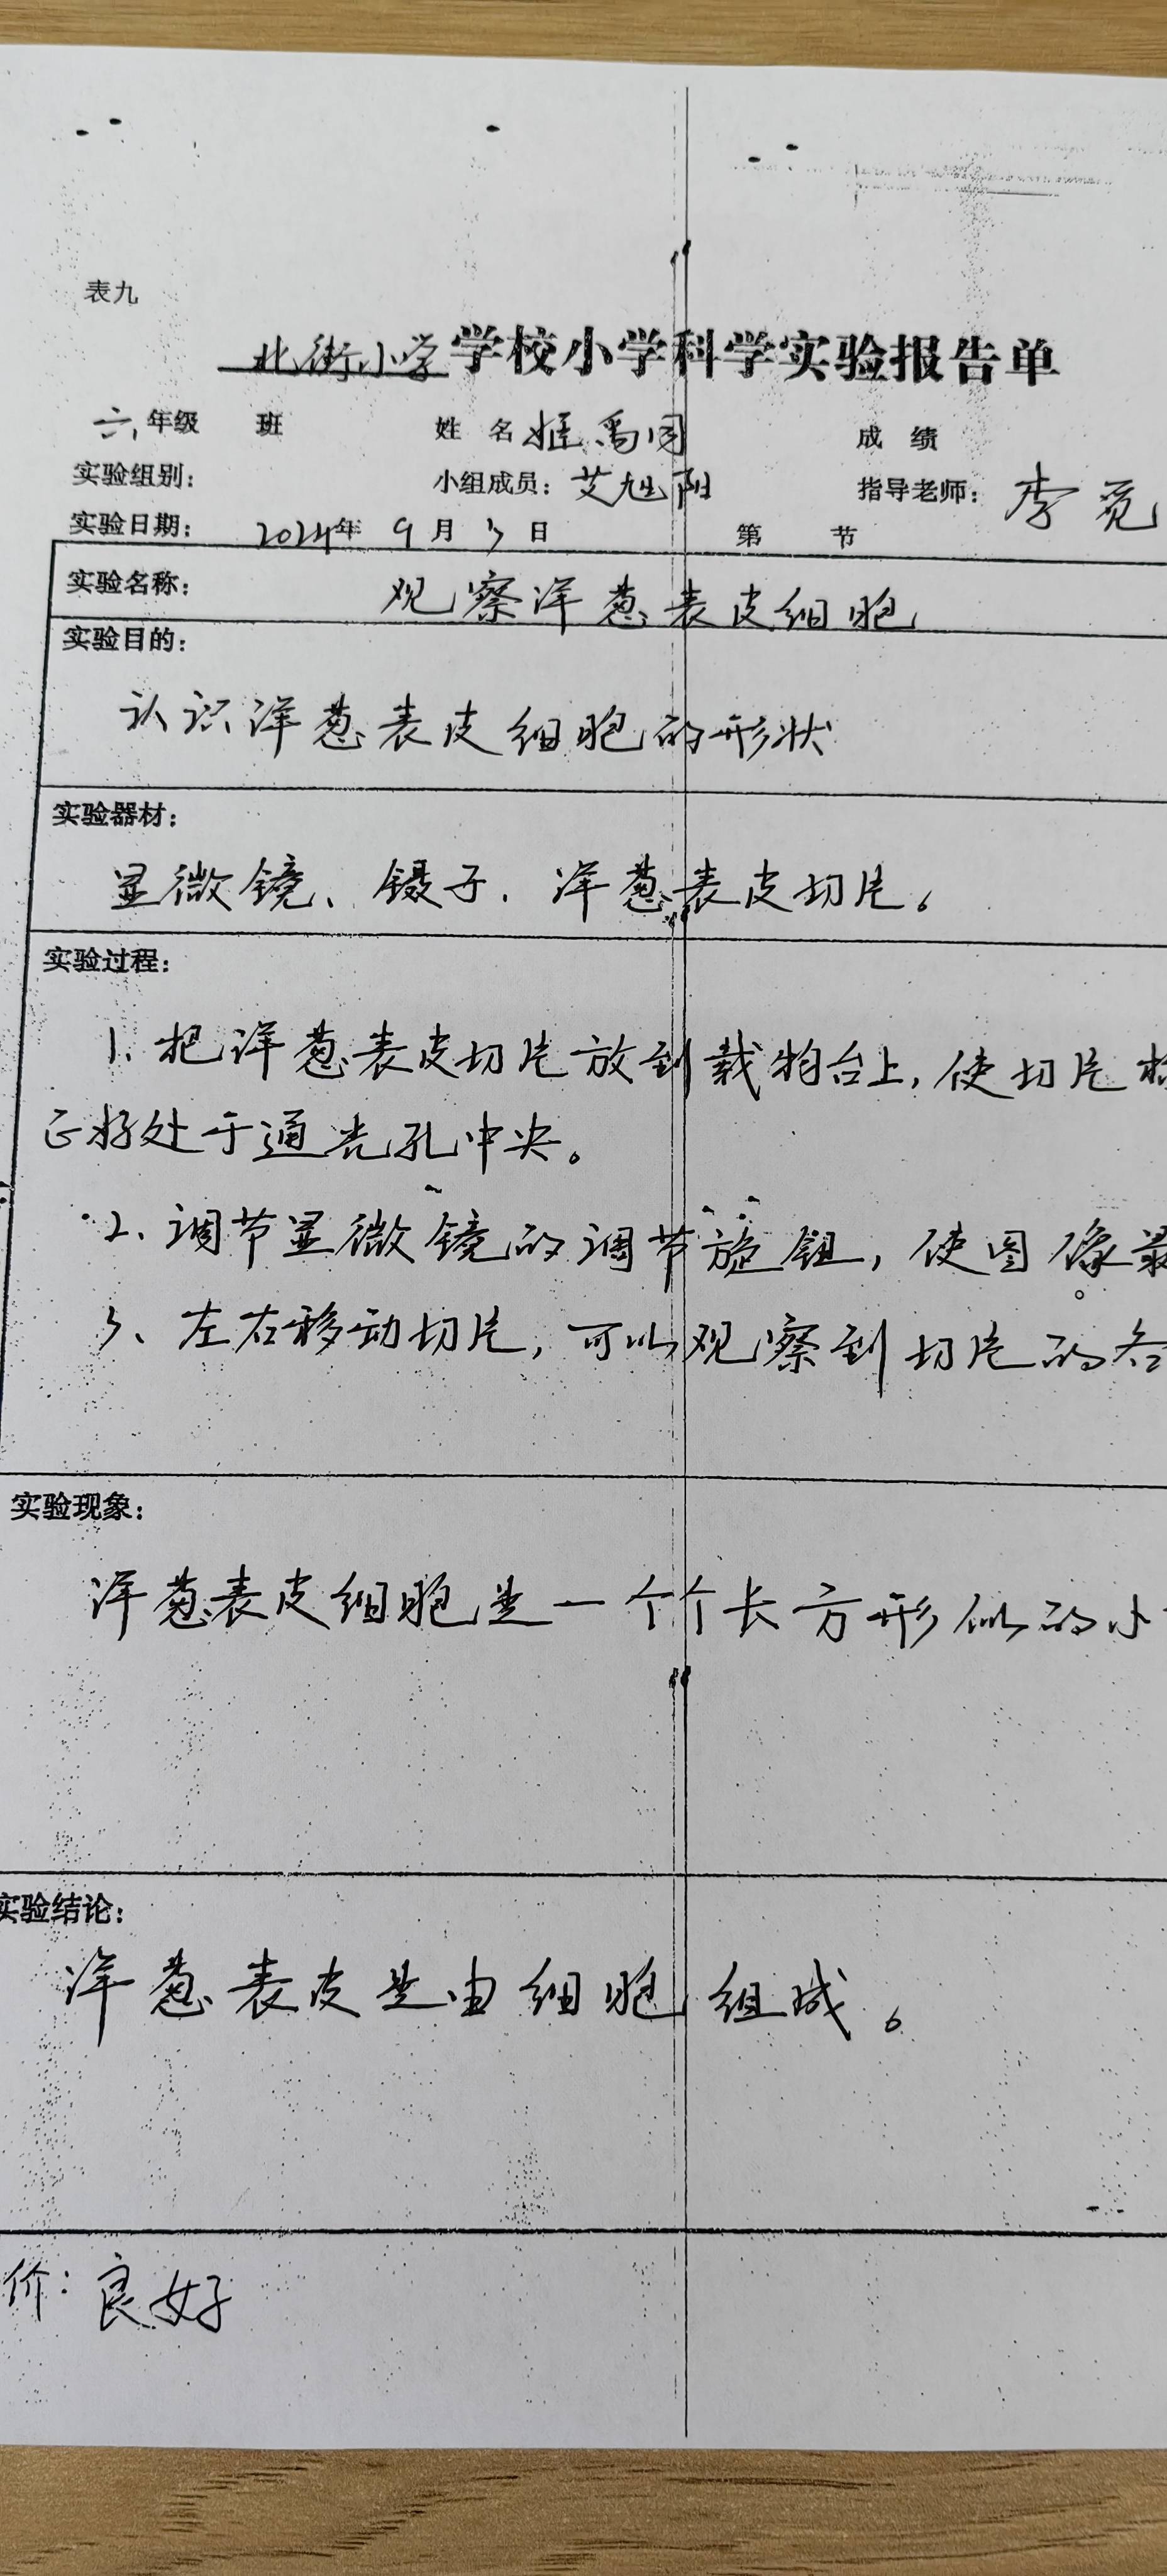 表九
北街小学学校小学科学实验报告单
六年级 班 姓名 姬禹同 成绩
实验组别： 小组成员：艾旭阳 指导老师：李觅
实验日期： 2024年 9月3日 第 节
实验名称： 观察洋葱表皮细胞
实验目的：
认识洋葱表皮细胞的形状
实验器材：
显微镜、镊子、洋葱表皮切片。
实验过程：
1、把洋葱表皮切片放到载物台上，使切片标
正好处于通光孔中央。
2、调节显微镜的调节旋钮，使图像最
3、左右移动切片，可以观察到切片的各
实验现象：
洋葱表皮细胞是一个个长方形似的小
实验结论：
洋葱表皮是由细胞组成。
价：良好